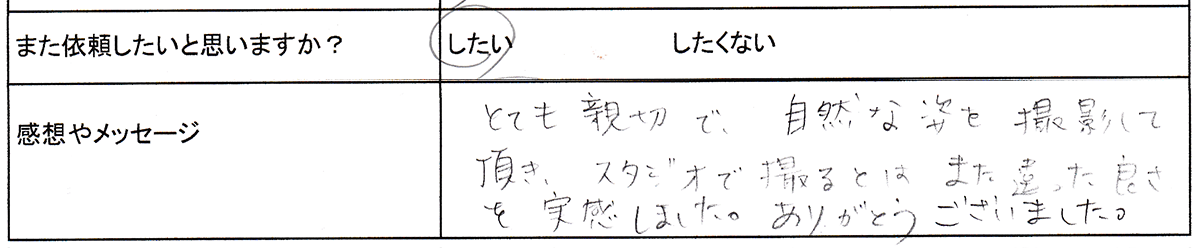 また依頼したいと思いますか？ したい したくない
感想やメッセージ
とても親切で、自然な姿を撮影して
頂き、スタジオで撮るとはまた違った良さ
を実感しました。ありがとうございました。